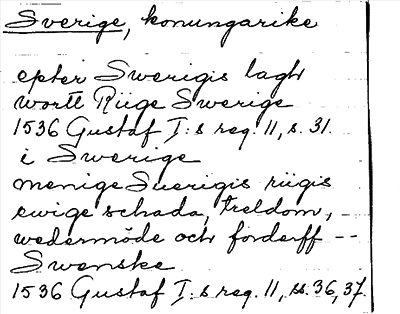 Sverige, konungarike
epter Swerigis lagh
wortt Riige Swerige
1536 Gustaf I:s reg. 11, s. 31.
i Swerige
menige Suerigis riigis
ewige schada, treldom, --
wedermöde och forderff --
Swenske
1536 Gustaf I:s reg. 11, ss. 36, 37.